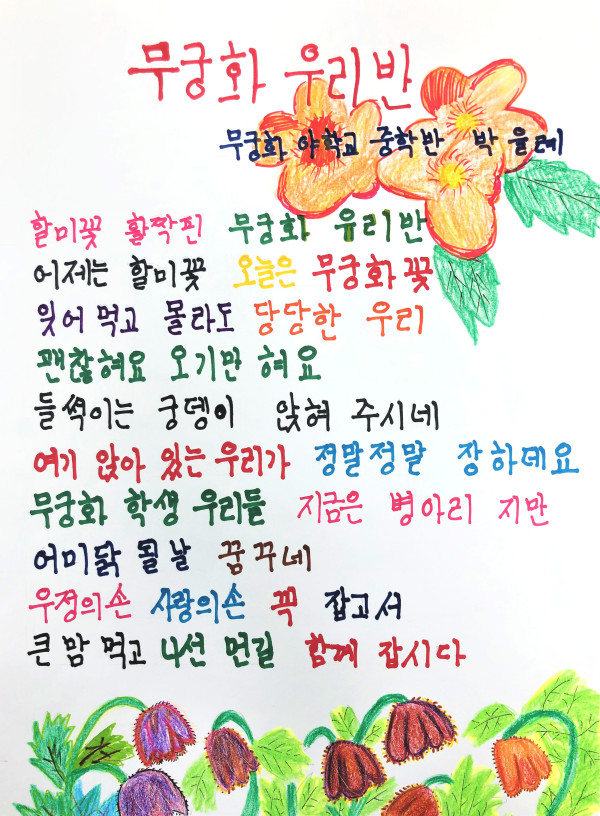 무궁화 우리반
무궁화 야학교 중학반 박 을레
할미꽃 활짝핀 무궁화 유리반
어제는 할미꽃 오늘은 무궁화 꽃
잊어 먹고 몰라도 당당한 우리
괜찮혀요 오기만 혀요
들썩이는 궁뎅이 앉혀 주시네
여기 앉아 있는 우리가 정말정말 장하데요
무궁화 학생 우리들 지금은 병아리 지만
어미닭 될날 꿈꾸네
우정의손 사랑의손 꼭 잡고서
큰 맘 먹고 나선 먼길 함께 잡시다